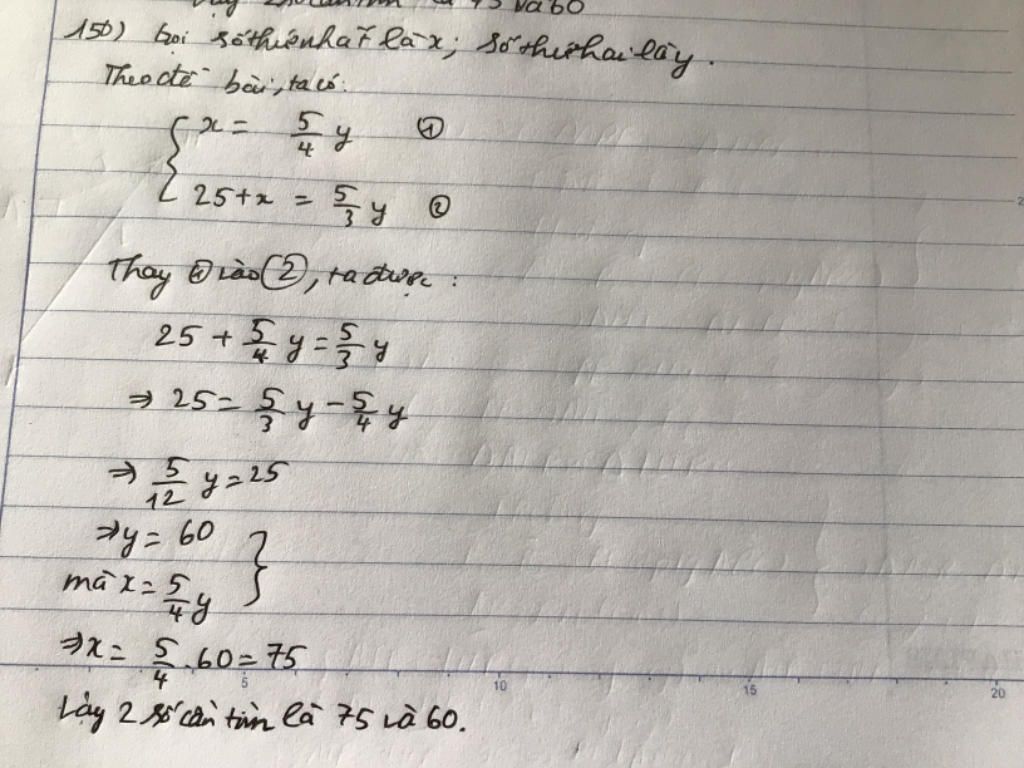 75 và 60
150) Gọi số thứ nhất là x; số thứ hai là y.
Theo đề bài, ta có:
{ x = 5/4 y ①
25 + x = 5/3 y ②
Thay ① vào ②, ta được:
25 + 5/4 y = 5/3 y
⇒ 25 = 5/3 y - 5/4 y
⇒ 5/12 y = 25
⇒ y = 60 }
mà x = 5/4 y
⇒ x = 5/4 . 60 = 75
5 10 15 20
Vậy 2 số cần tìm là 75 và 60.